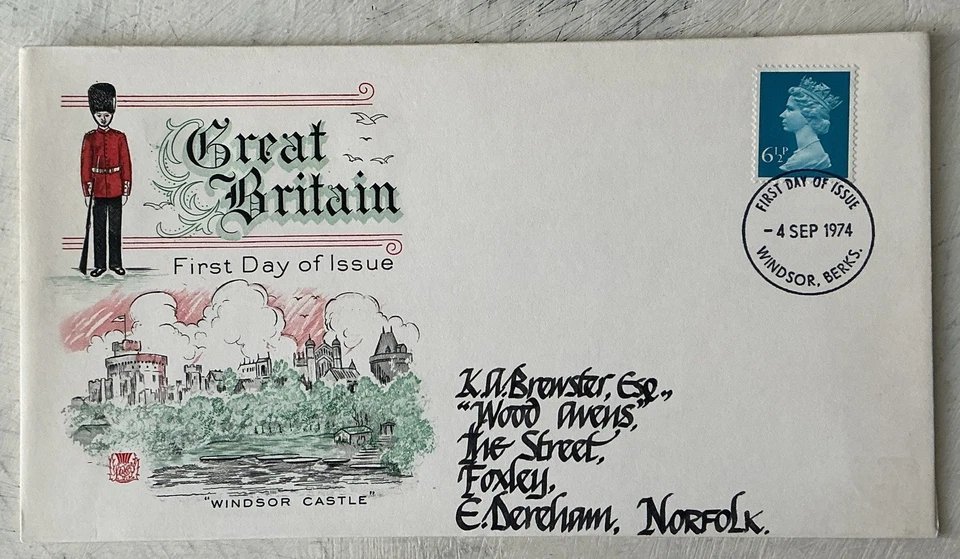 Great
Britain
First Day of Issue
"WINDSOR CASTLE"
6½P
FIRST DAY OF ISSUE
- 4 SEP 1974
WINDSOR, BERKS.
K.A.Brewster, Esq.,
"Wood Avens",
The Street,
Foxley,
E.Dereham, NORFOLK.